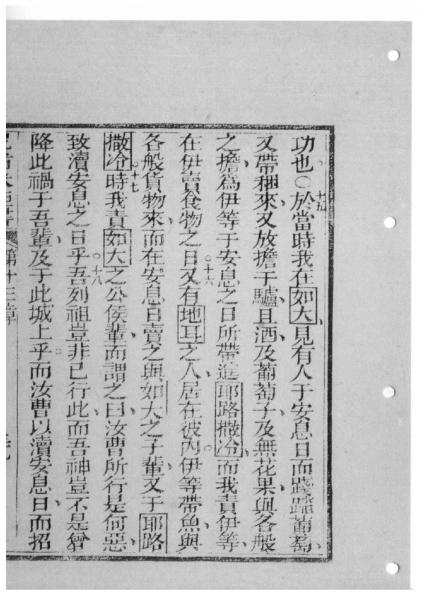 功也○十五於當時我在如大見有人于安息日而踐蹈葡萄
又帶稛來又放擔于驢且酒及葡萄子及無花果與各般
之擔為伊等于安息之日所帶進耶路撒冷而我責伊等
在伊賣食物之日○十六又有地耳之人居在彼內伊等帶魚與
各般貨物來而在安息日賣之與如大之子輩又于耶路
撒冷○十七時我責如大之公侯輩而謂之曰汝曹所行是何惡
致瀆安息之日乎○十八吾列祖豈非已行此而吾神豈不是曾
降此禍于吾輩及于此城上乎而汝曹以瀆安息日而招
第十三章